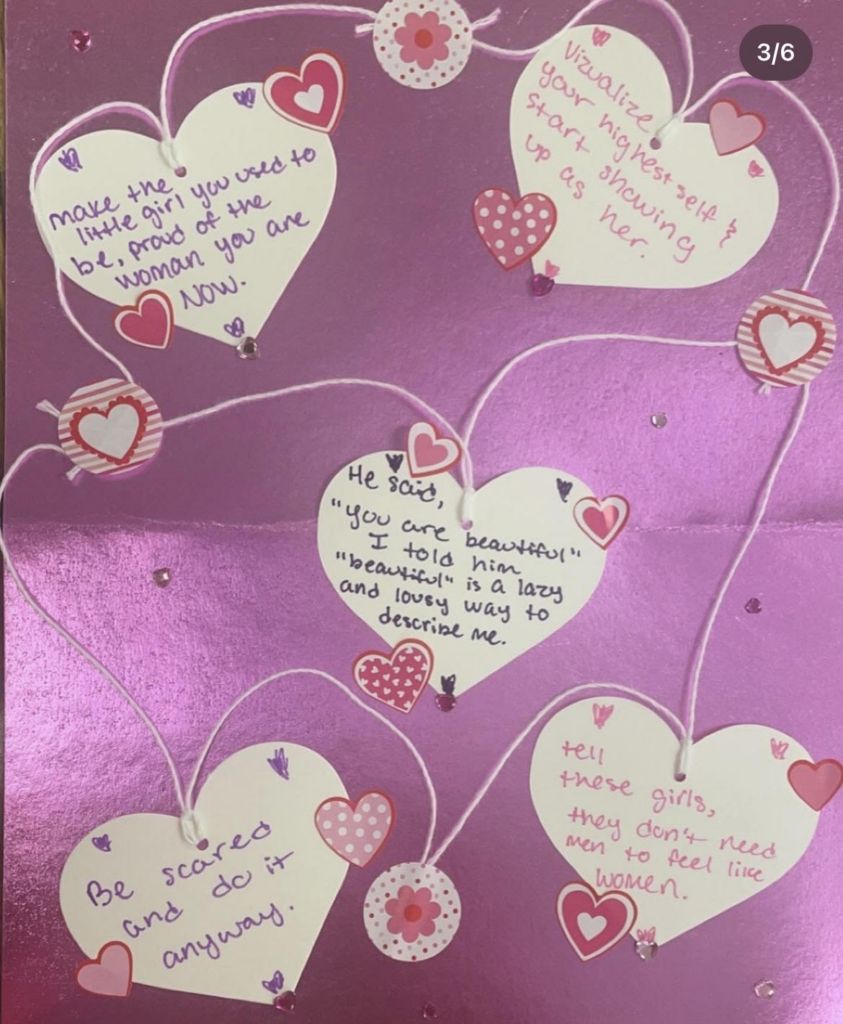 3/6
make the
little girl you used to
be, proud of the
woman you are
NOW.
Vizualize
your highest self &
start showing
up as her.
He said,
"you are beautiful"
I told him
"beautiful" is a lazy
and lousy way to
describe me.
Be scared
and do it
anyway.
tell
these girls,
they don't need
men to feel like
women.